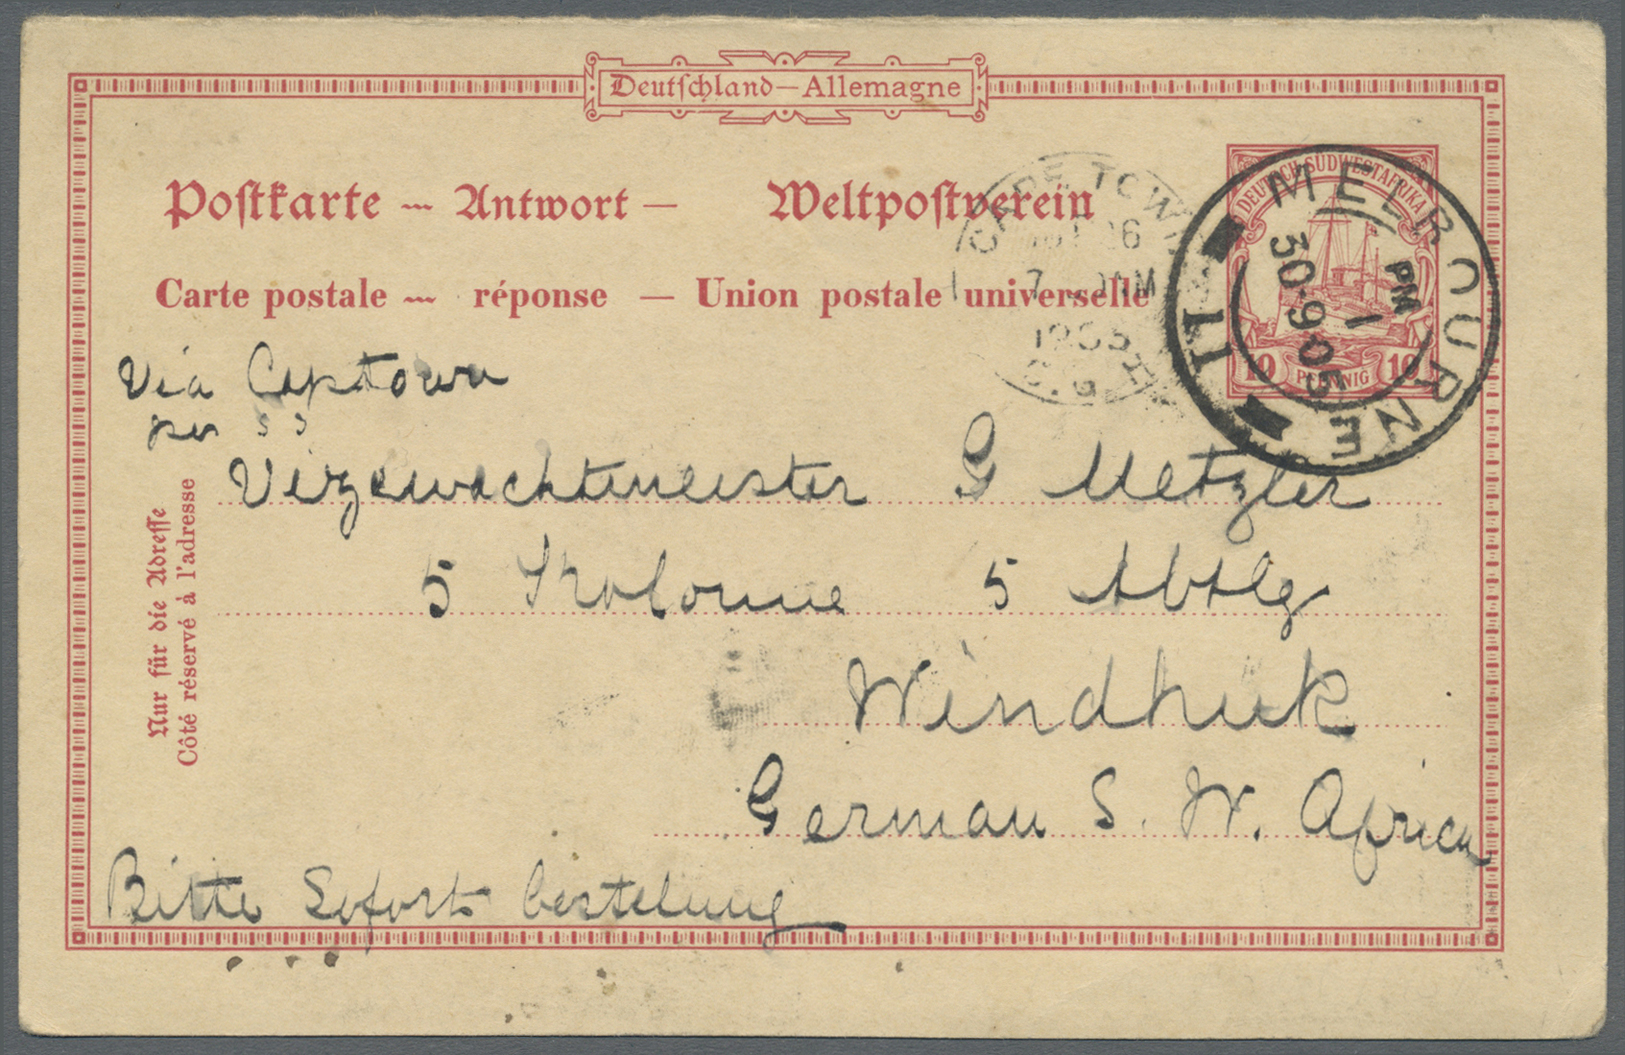 Deutschland — Allemagne
Postkarte — Antwort — Weltpostverein
Carte postale — réponse — Union postale universelle
DEUTSCH-SÜDWESTAFRIKA
10 PFENNIG 10
MELBOURNE
PM
1
30·9 05
11
CAPE TOWN
26
7 AM
1905
C.G.H
Via Captown
per SS
Vizewachtmeister G Metzler
5 Kolonne 5 Abtlg
Windhuk
German S. W. Africa
Bitte Sofort bestelung
Nur für die Adresse
Côté réservé à l'adresse